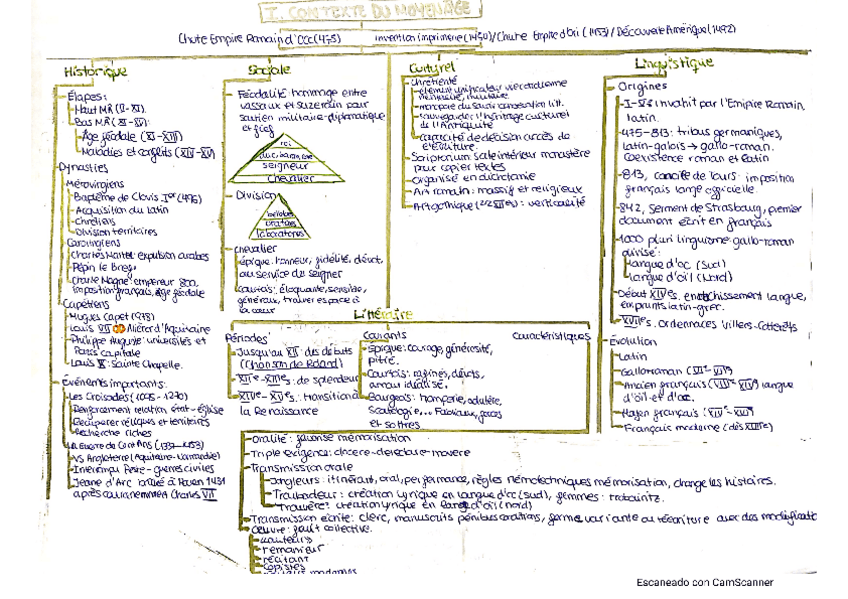 I. CONTEXTE DU MOYEN AGE
Chute Empire Romain d'Occ (475)
invention imprimerie (1450)/Chute Empire d'Ori (1453)/Découverte Amérique (1492)
Historique
Étapes:
Haut M.A (V-XI)
Bas M.A (XI-XV):
Âge féodale (XI-XIII)
Maladies et conflits (XIV-XV)
Dynasties
Mérovingiens
Baptême de Clovis Ier (496)
Acquisition du latin
Chrétiens
Division territoires
Carolingiens
Charles Martel: expulsion arabes
Pépin le Bref
Charle Magne: empereur 800,
imposition français, âge féodale
Capétiens
Hugues Capet (978)
Louis VII Aliérord'Aquitaine
Philippe Auguste: universités et
Paris capitale
Louis X: Sainte Chapelle.
Événements importants:
Les Croisades (1095-1270)
Renforcement relation état-église
Récupérer reliques et territoires
Recherche riches
La Guerre de Cent Ans
VS Angleterre (Aquitaine-Normandie)
Interrompu Peste-guerres civiles
Jeane d'Arc brûlé à Rouen 1431
après Charles VII
Sociale
Féodalité: hommage entre
vassaux et suzerain pour
soutien militaire-diplomatique
et fief
roi
duc, baron,
seigneur
chevalier
Division
oratores
laboratores
Chevalier
épique: honneur, fidélité, dévot,
au service du seigner
Courtois: éloquante, sensible,
généraux, trouver espace à
la cœur
Culturel
Chrétienté
élément unificateur
monopole du savoir conservation litt.
sauvegarder l'héritage culturel
de l'Antiquité
capacité de décision accès de
Scriptorium: salle intérieur monastère
pour copier textes
Organisé en
Art romain: massif et religieux
Art gothique: verticalité
Linguistique
Origines
I-V: invahit par l'Empire Romain,
latin.
475-813: tribus germaniques,
latin-galois → gallo-roman.
Coexistence roman et latin
813, concile de Tours: imposition
français langue officielle.
842, Serment de Strasbourg, premier
document écrit en français
1000 pluri linguisme: gallo-roman
divisé:
langue d'oc (Sud)
langue d'oïl (Nord)
Début XIVe s. enrichissement langue,
emprunts latin-grec.
XVIe s. Ordennaces Villers-Cotterêts
Évolution
Latin
Galloroman
Ancien français langue
d'oïl et d'oc.
Moyen français
Français moderne
Littéraire
Périodes
Jusqu'au XII: des débuts
(Chanson de Roland)
XIIe-XIIIe s: de splendeur
XIVe-XVe s: transition à
la Renaissance
Courants
Épique: courage, générosité,
pitié.
Courtois: rafinés, dévots,
amour idéalisé.
Bourgeois: tromperie, adultère,
Scatologie,... Fabliaux, farces
et sottres
Caractéristiques
Oralité: favorise mémorisation
Triple exigence: docere-delectare-movere
Transmission orale
Jongleurs: itinérant, oral, performance, règles némotechniques mémorisation, change les histoires.
Troubadour: création lyrique en langue d'oc (sud), femmes: trobairitz.
Trouvère: création lyrique en langue d'oïl (nord)
Transmission écrite: clerc, manuscrits forme variante ou réécriture avec des
Œuvre: fruit collective.
remanieur
récitant
copistes
Escaneado con CamScanner